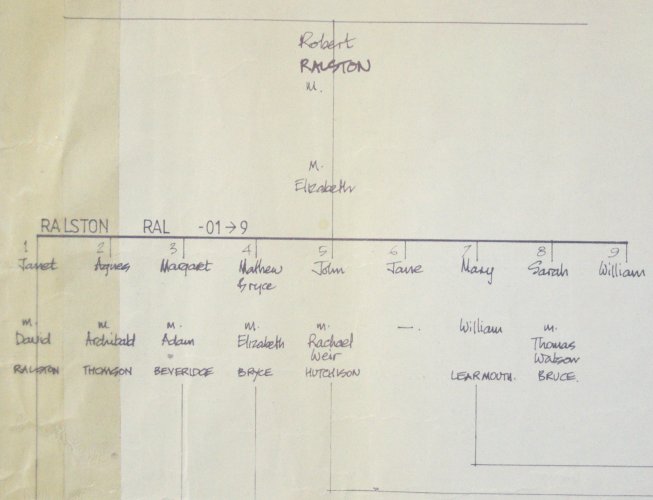 Robert
RALSTON
m.
m.
Elizabeth
RALSTON RAL -01→9
1 2 3 4 5 6 7 8 9
Janet Agnes Margaret Mathew John Jane Mary Sarah William
Bryce
m. m. m. m. m. —. William m.
David Archibald Adam Elizabeth Rachael Thomas
Weir Watson
RALSTON THOMSON BEVERIDGE BRYCE HUTCHISON LEARMOUTH. BRUCE.